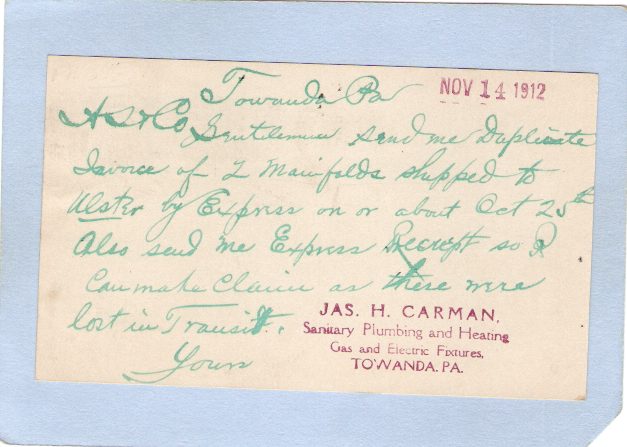 Towanda Pa
NOV 14 1912
A S & Co Gentlemen send me Duplicate
Invoice of 2 Manifolds shipped to
Ulster by Express on or about Oct 25th
Also send me Express Receipt so I
Can make Claim as these were
lost in Transit.
Yours
JAS. H. CARMAN,
Sanitary Plumbing and Heating
Gas and Electric Fixtures,
TOWANDA, PA.